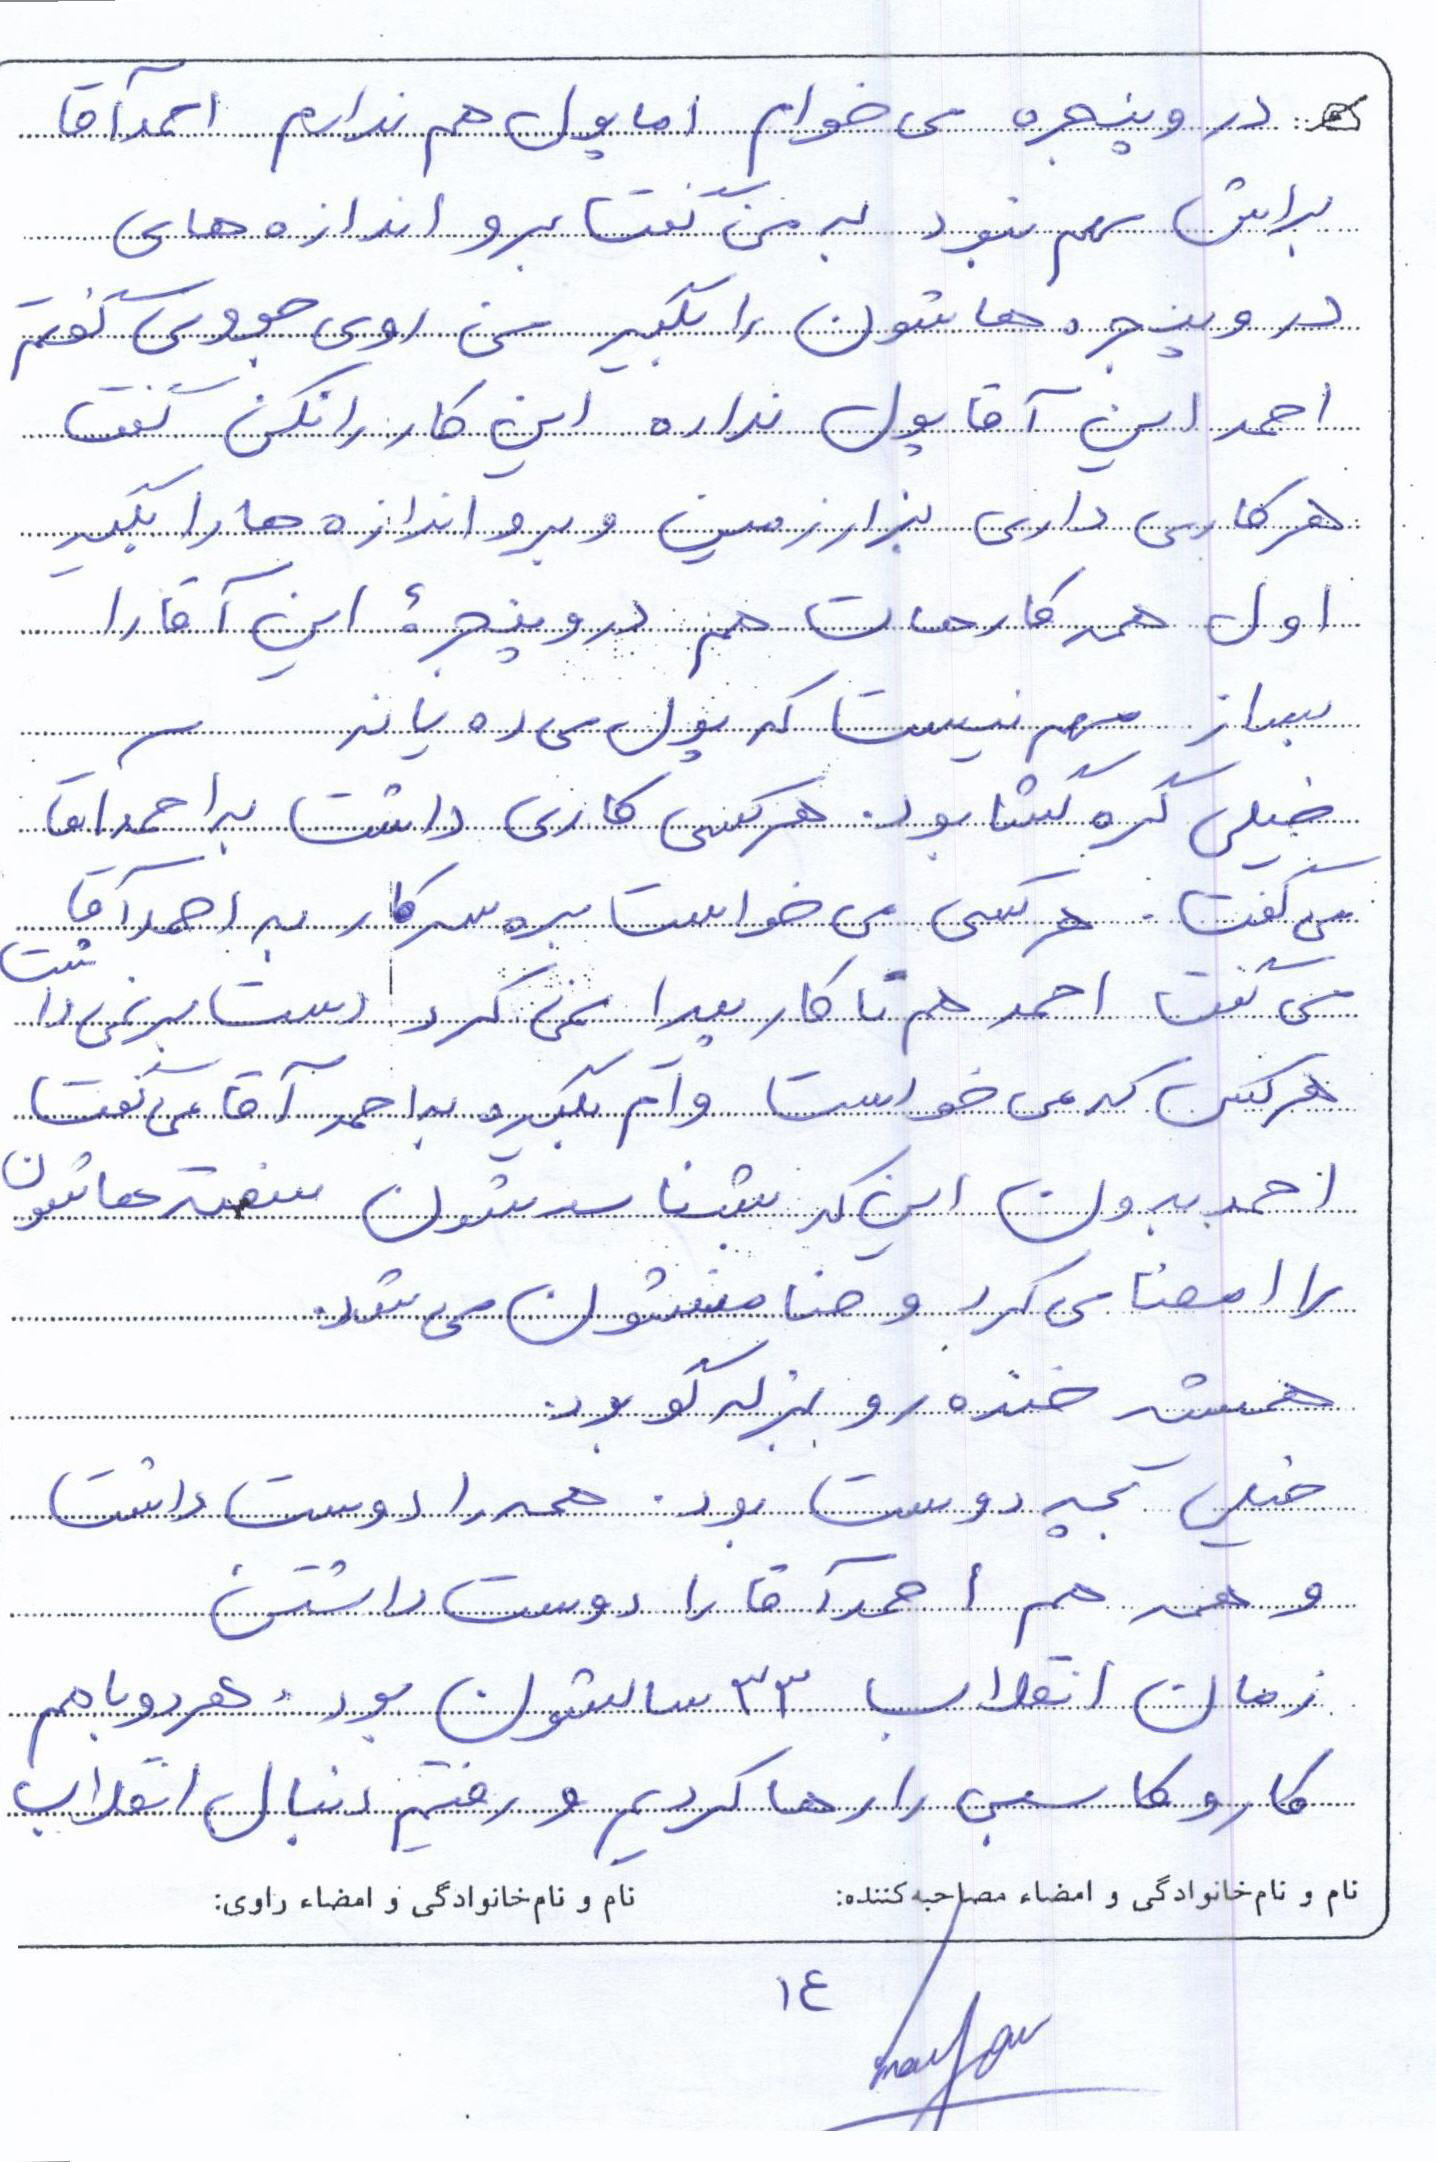 در و پنجره می خوام اما پول هم ندارم احمد آقا
براش مهم نبود به من گفت برو اندازه های
در و پنجره هاشون را بگیر من روی خوبی گفتم
احمد این آقا پول نداره این کار را نکن گفت
هر کاری داری بزار زمین و برو اندازه ها را بگیر
اول همه کارهات هم در و پنجرهٔ این آقا را
بساز مهم نیست که پول می ده یا نه
خیلی گره گشا بود. هر کسی کاری داشت به احمد آقا
می گفت. هر کسی می خواست بره سر کار به احمد آقا
می گفت احمد هم تا کار پیدا نمی کرد دست بر نمی داشت
هر کس که می خواست وام بگیره به احمد آقا می گفت
احمد بدون این که بشناسدشون سفته هاشون
را امضا می کرد و ضامنشون می شد.
همیشه خنده رو بزله گو بود.
خیلی بچه دوست بود. همه را دوست داشت
و همه هم احمد آقا را دوست داشتن
زمان انقلاب ۳۳ سالشون بود. هر دو با هم
کار و کاسبی را رها کردیم و رفتیم دنبال انقلاب
نام و نام‌خانوادگی و امضاء مصاحبه‌کننده: نام و نام‌خانوادگی و امضاء راوی:
۱٤